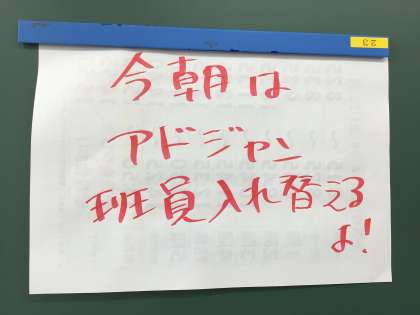 今朝は
アドジャン
班員入れ替える
よ!
23